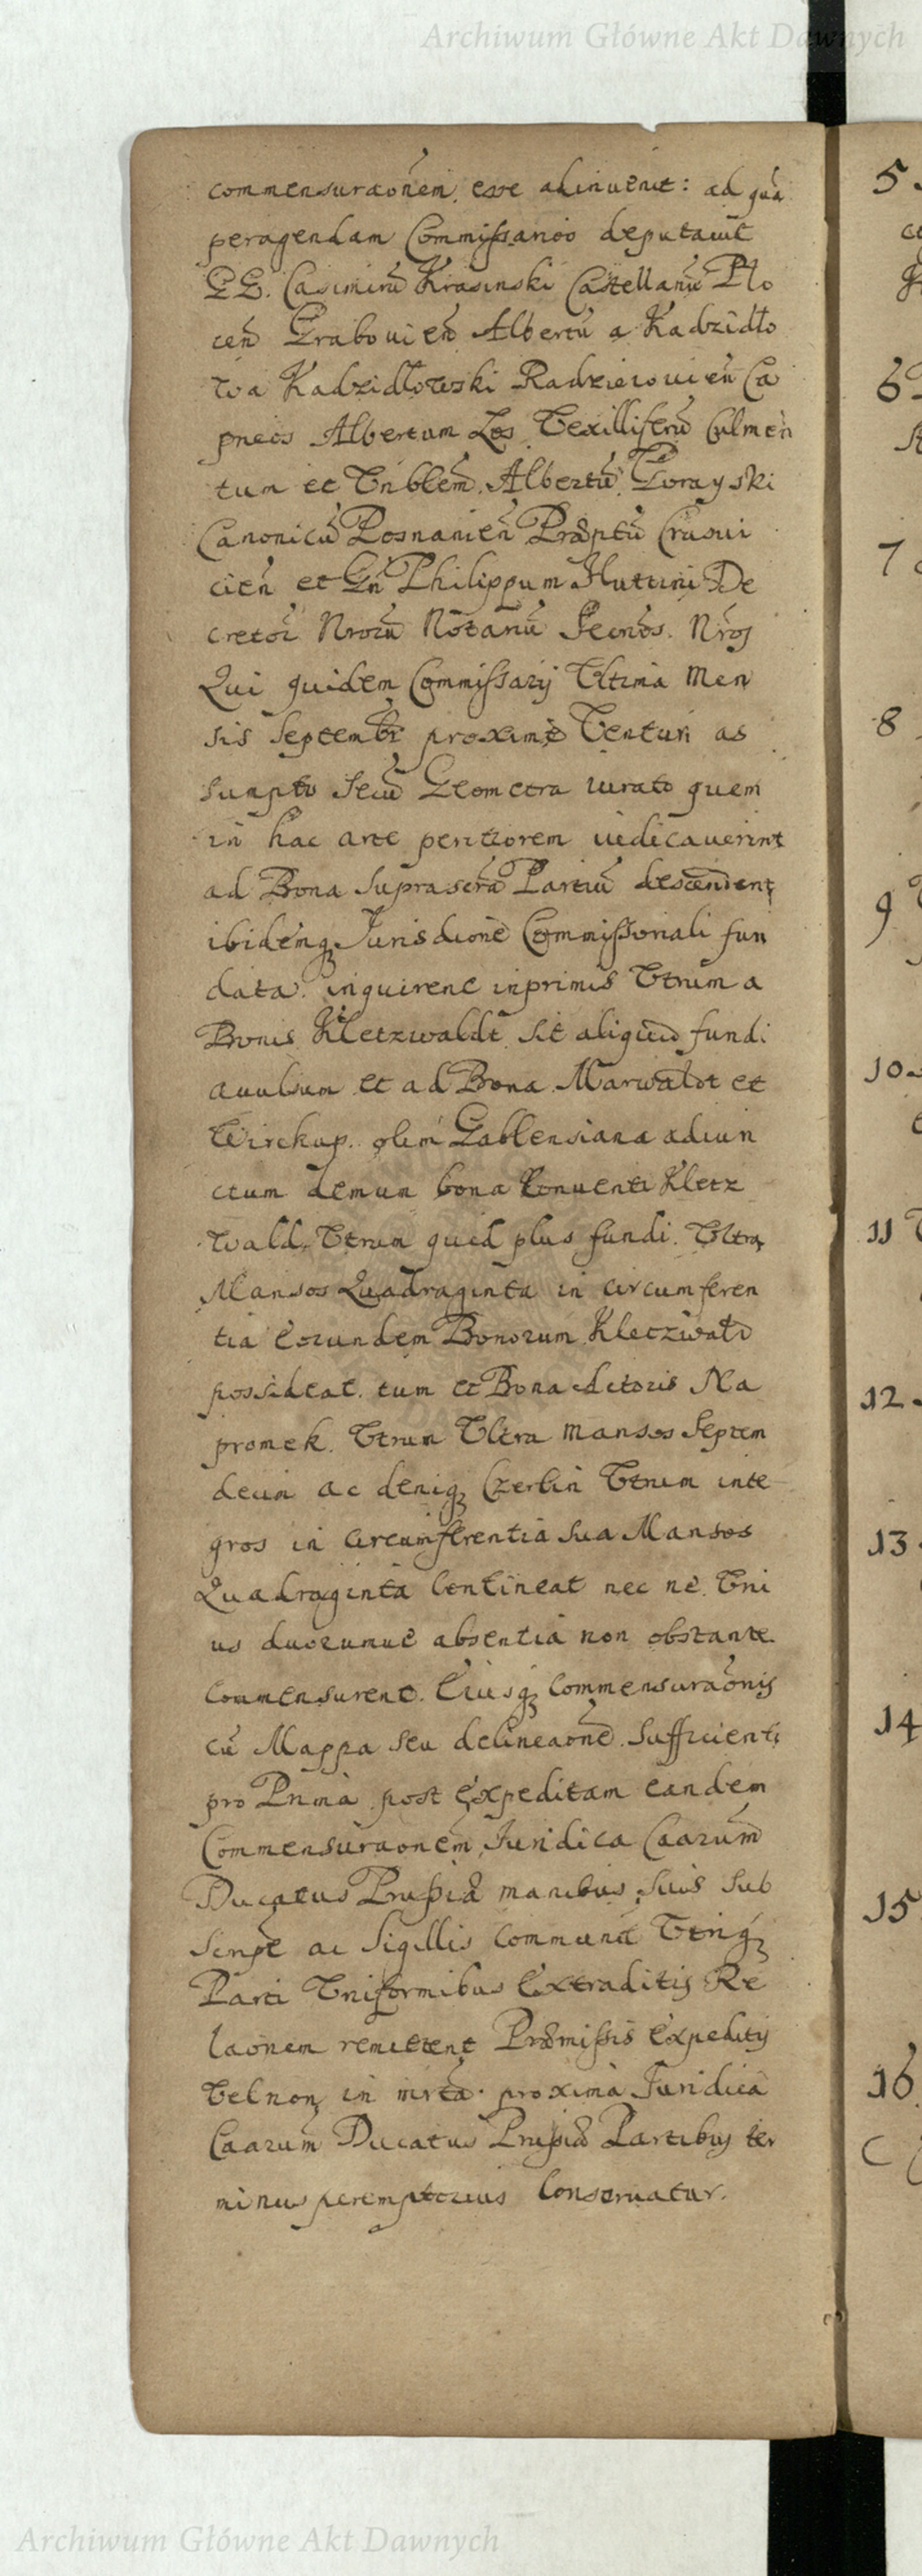 Archiwum Główne Akt Dawnych
commensuraonem. esse adinuenit: ad quā
peragendam Commissarios deputauit
GG. Casimirū Krasinski Castellanū Plo
cen̄ Grabouien̄ Albertū a Kadzidło
wa Kadzidłowski Radzieiouien̄ Ca
pneos Albertum Los Vexilliferū Culmen
tum et Vnblem̄. Albertū Gorayski
Canonicū Posnanien̄ Præptū Crusui
cien̄ et Gn̄ Philippum Huttini De
cretor̄ Nrorū Notariū Secrtos. Nros
Qui quidem Commissarij Vltima Men
sis Septembr proximè Venturi as
sumpto Secū Geometra iurato quem
in hac arte peritiorem iudicauerint
ad Bona suprascrā Partiū descendent
ibidemq Jurisdione Commissoriali fun
data. inquirent inprimis Vtrum a
Bonis Kletzwaldt sit aliquid fundi
auulsum et ad Bona Marwaldt et
Wirckup. olim Gablensiana adiun
ctum demum bona Conuenti Kletz
wald, Vtrum quid plus fundi. Vltra
Mansos Quadraginta in circumferen
tia Eorundem Bonorum Kletzwald
possideat. tum et Bona Actoris Na
promek. Vtrum Vltra mansos Septem
decim ac deniq Czerlin Vtrum inte
gros in circumferentia sua Mansos
Quadraginta Contineat nec ne. Vni
us duorumue absentia non obstante.
Commensurent. Eiusq Commensuraonis
cū Mappa seu delineaone. Sufficienti
pro Prima post Expeditam eandem
Commensuraonem Juridica Caarum
Ducatus Prussiæ manibus suis sub
script ac Sigillis Communit Vtriq
Parti Vniformibus Extraditis Re
laonem remittent Præmissis Expeditis
Vel non, in nrā. proxima Juridica
Caarum Ducatus Prussiæ Partibus ter
minus peremptorius Conseruatur.
5
6
7
8
9
10
11
12
13
14
15
16
Archiwum Główne Akt Dawnych